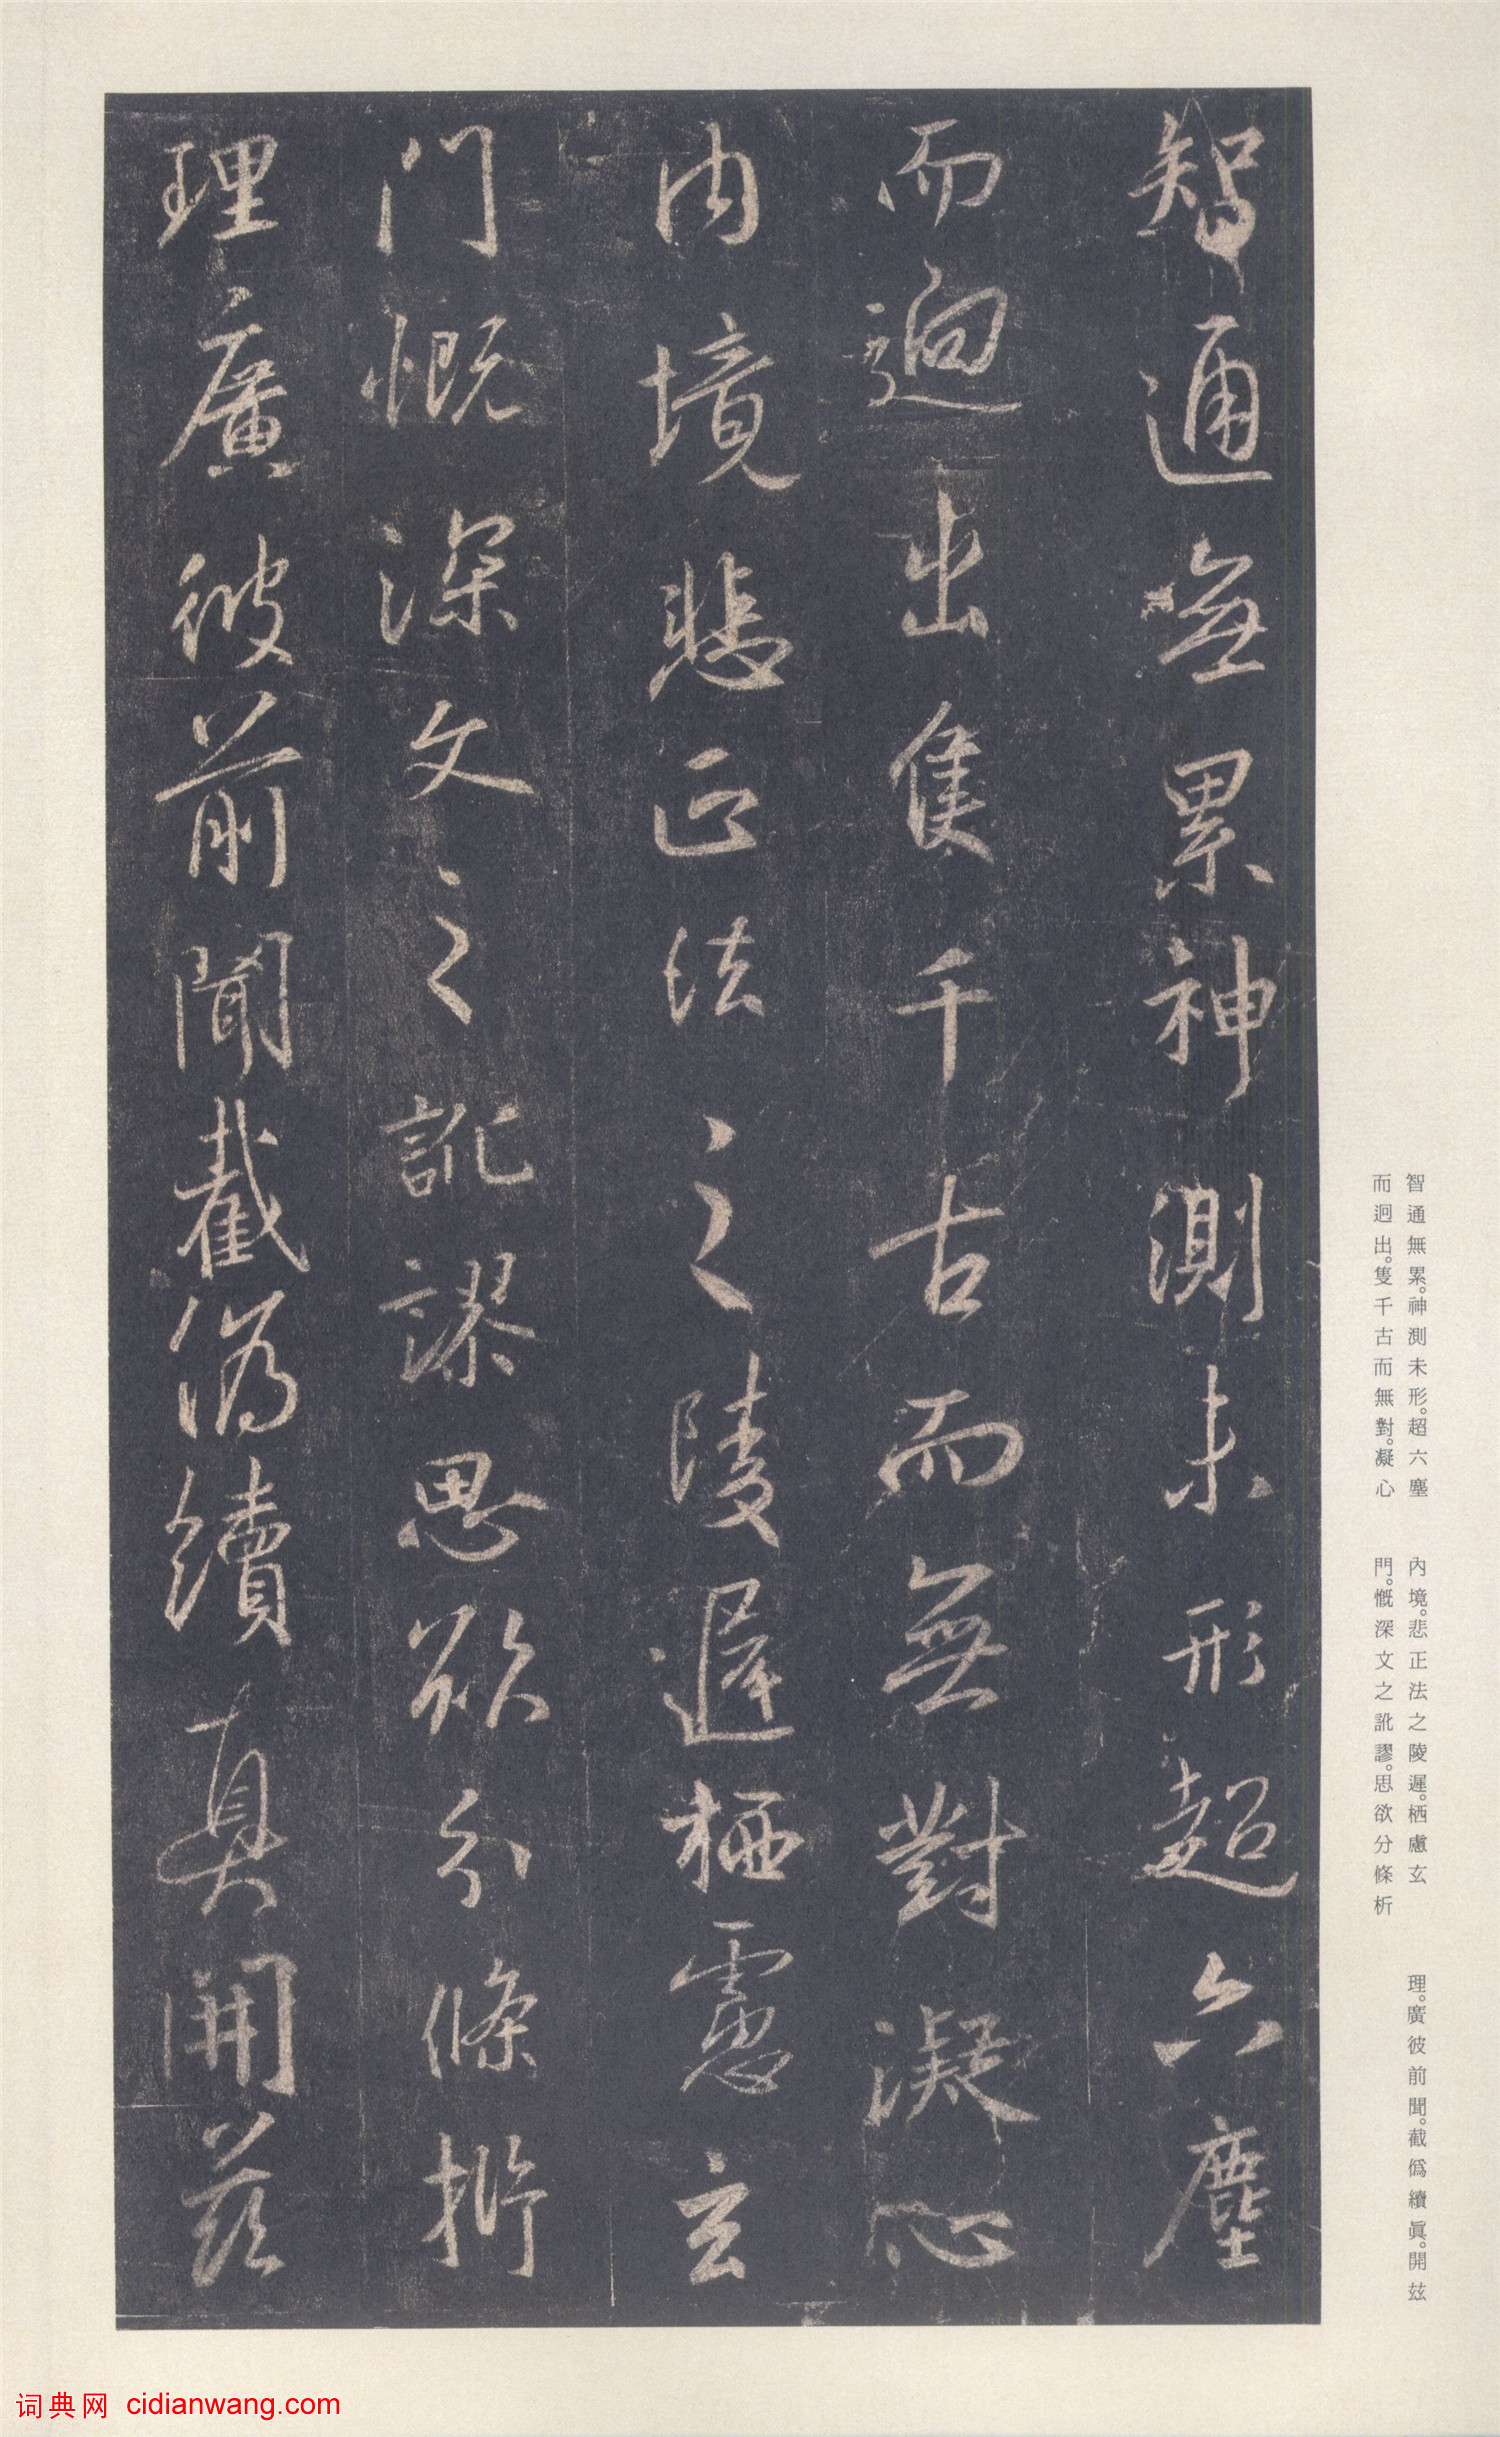 智通無累神測未形超六塵
而迥出隻千古而無對凝心
內境悲正法之陵遲栖慮玄
門慨深文之訛謬思欲分條析
理廣彼前聞截偽續真開茲
智通無累。神測未形。超六塵
而迥出。隻千古而無對。凝心
內境。悲正法之陵遲。栖慮玄
門。慨深文之訛謬。思欲分條析
理。廣彼前聞。截僞續眞。開玆
词典网 cidianwang.com